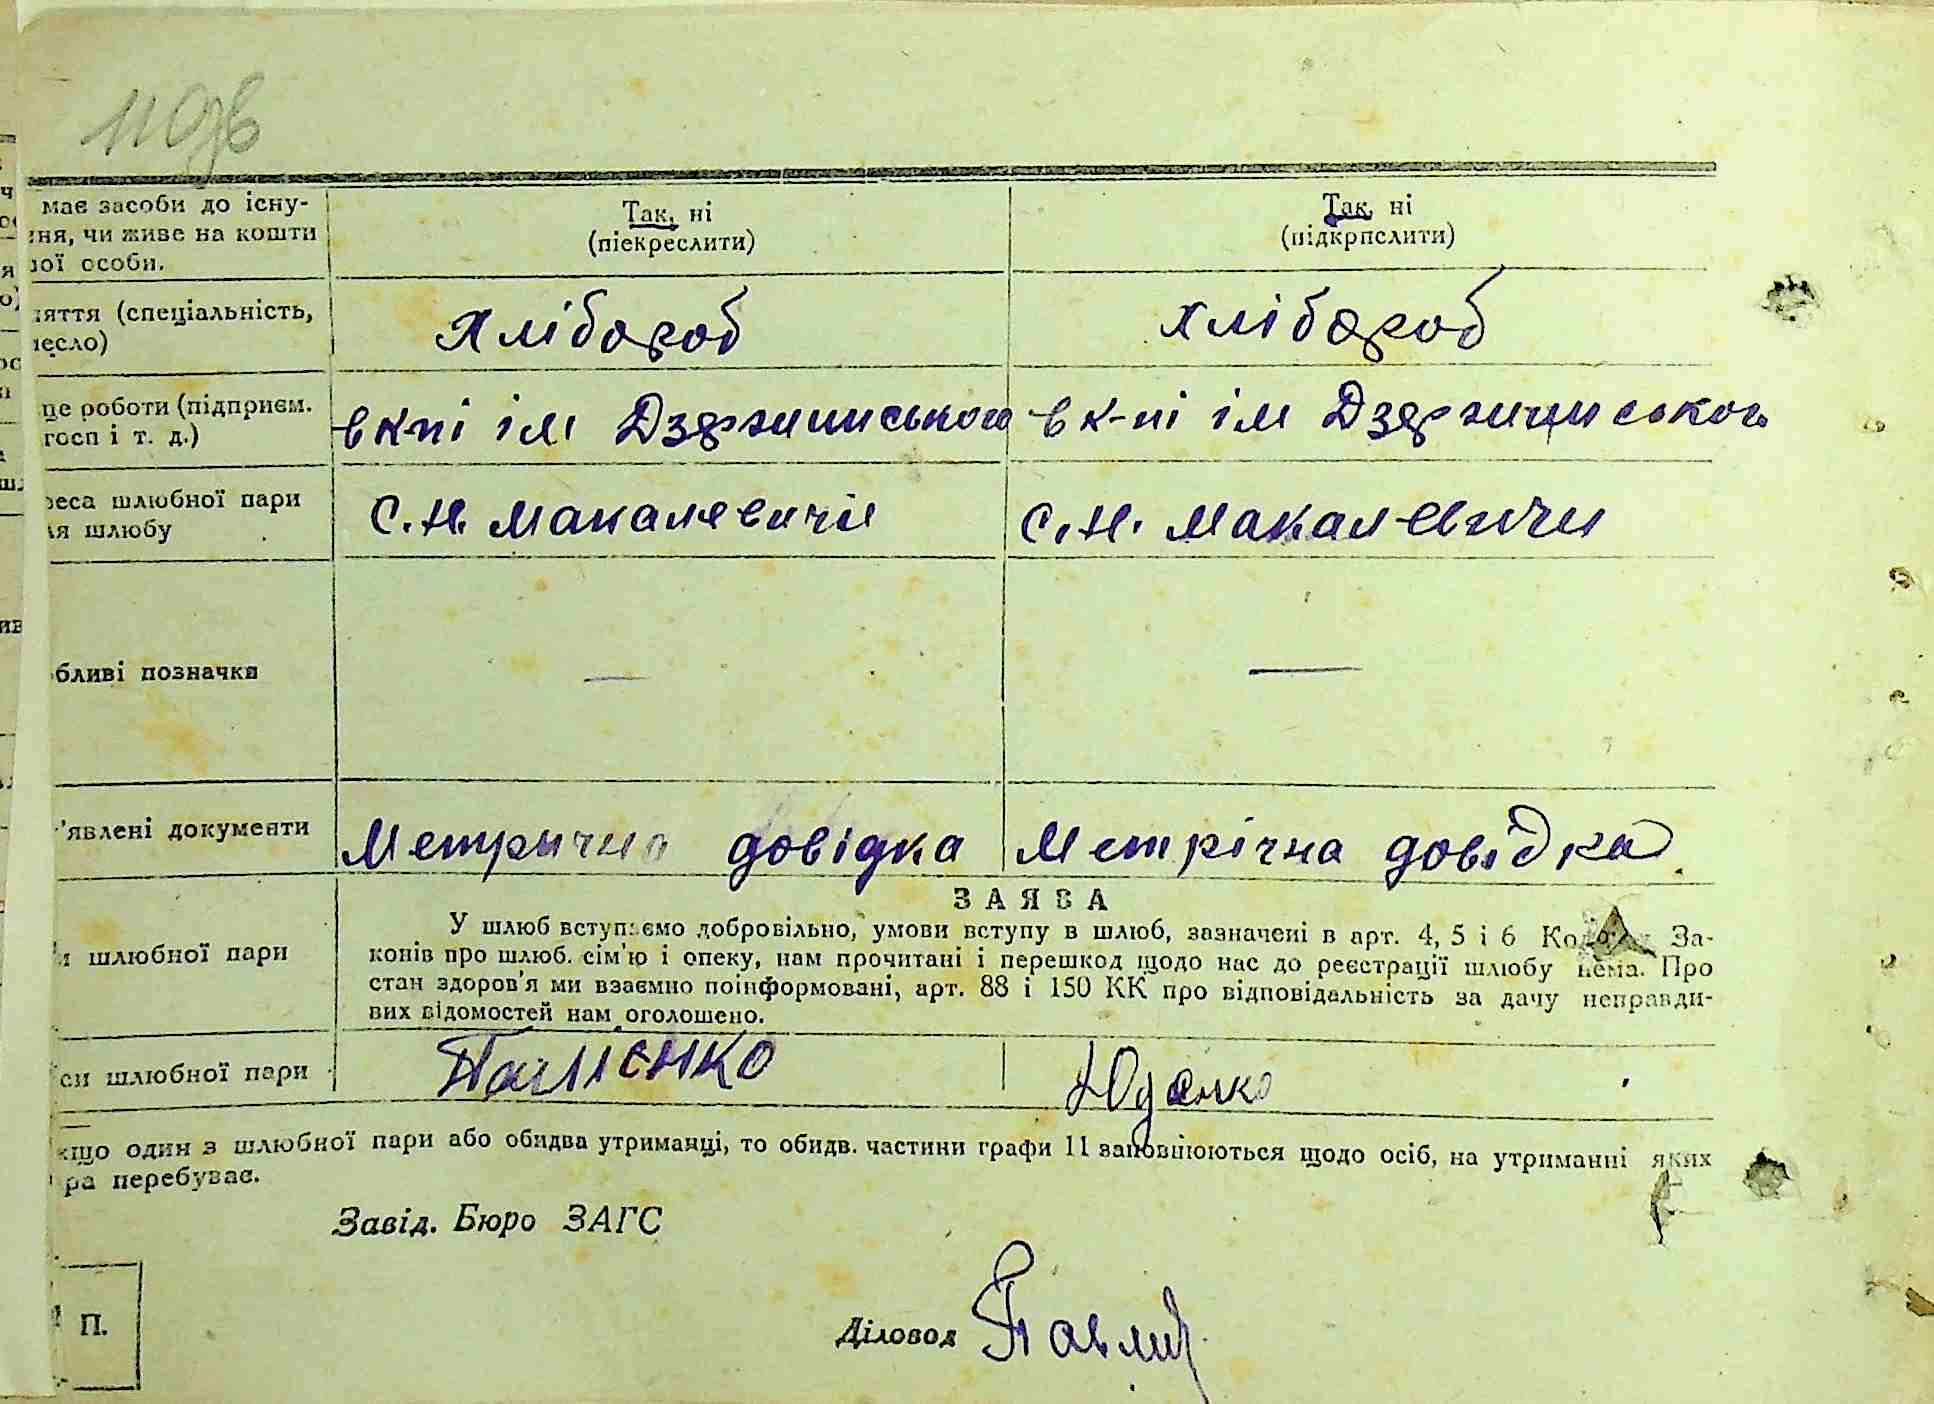 110зв
має засоби до існу-
ня, чи живе на кошти
ої особи.
Так, ні
(піекреслити)
Так, ні
(підкрпслити)
яття (спеціальність,
есло)
Хлібороб
хлібороб
це роботи (підприєм.
госп і т. д.)
в к-пі ім Дзержинського
в к-пі ім Дзержинського
еса шлюбної пари
ля шлюбу
С.Н. Макалевичи
С.Н. Макалевичи
бливі позначки
—
—
'явлені документи
Метрична довідка
Метрічна довідка
ЗАЯВА
шлюбної пари
У шлюб вступаємо добровільно, умови вступу в шлюб, зазначені в арт. 4, 5 і 6 За-
конів про шлюб. сім'ю і опеку, нам прочитані і перешкод щодо нас до реєстрації шлюбу нема. Про
стан здоров'я ми взаємно поінформовані, арт. 88 і 150 КК про відповідальність за дачу неправди-
вих відомостей нам оголошено.
си шлюбної пари
Юденко
кщо один з шлюбної пари або обидва утриманці, то обидв. частини графи 11 заповнюються щодо осіб, на утриманні яких
ра перебуває.
Завід. Бюро ЗАГС
П.
Діловод